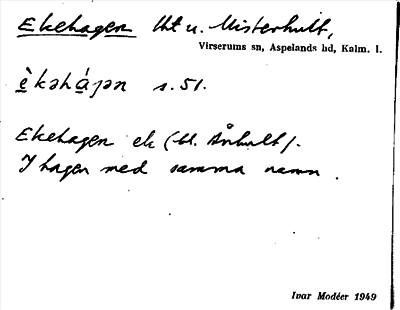 Ekehagen lht u. Misterhult,
Virserums sn, Aspelands hd, Kalm. l.
è̱kəhá̱gən s. 51.
Ekehagen ek (bl. Århult).
I hagen med samma namn.
Ivar Modéer 1949